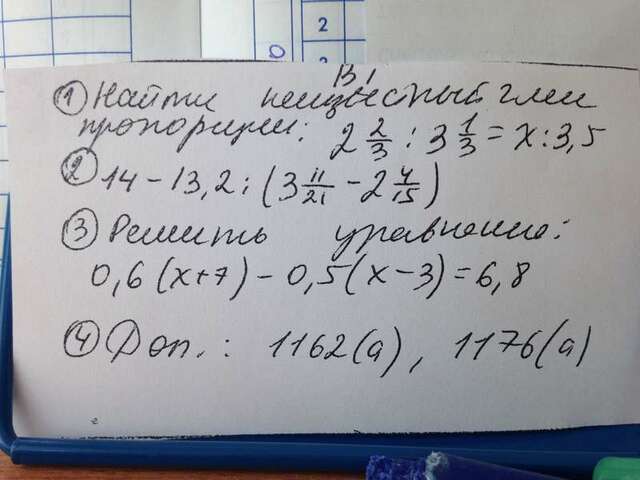 2
2
В1
① Найти неизвестный член
пропорции: 2 2/3 : 3 1/3 = x : 3,5
② 14 - 13,2 : (3 11/21 - 2 4/15)
③ Решить уравнение:
0,6(x+7) - 0,5(x-3) = 6,8
④ Доп.: 1162(а), 1176(а)